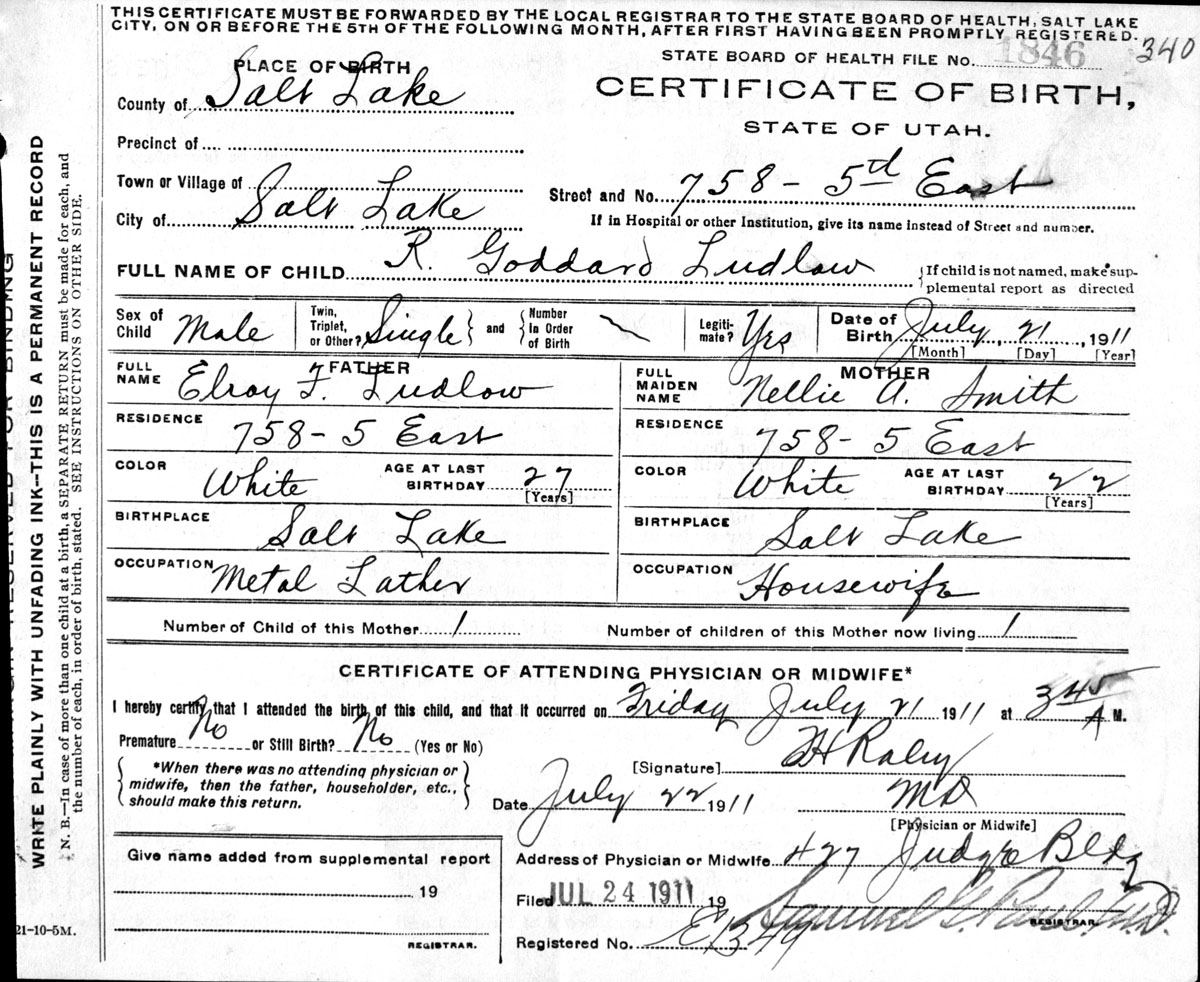 THIS CERTIFICATE MUST BE FORWARDED BY THE LOCAL REGISTRAR TO THE STATE BOARD OF HEALTH, SALT LAKE
CITY, ON OR BEFORE THE 5TH OF THE FOLLOWING MONTH, AFTER FIRST HAVING BEEN PROMPTLY REGISTERED.
340
STATE BOARD OF HEALTH FILE No. 1846
PLACE OF BIRTH
CERTIFICATE OF BIRTH,
STATE OF UTAH.
County of Salt Lake
Precinct of
Town or Village of
Street and No. 758 - 5th East
City of Salt Lake
If in Hospital or other Institution, give its name instead of Street and number.
FULL NAME OF CHILD R. Goddard Ludlow
If child is not named, make sup-
plemental report as directed
Sex of Child Male
Twin, Triplet, or Other? Single and Number In Order of Birth
Legiti-mate? Yes
Date of Birth July 21, 1911
[Month] [Day] [Year]
FATHER
FULL NAME Elroy F. Ludlow
RESIDENCE 758 - 5 East
COLOR White AGE AT LAST BIRTHDAY 27
[Years]
BIRTHPLACE Salt Lake
OCCUPATION Metal Lather
MOTHER
FULL MAIDEN NAME Nellie A. Smith
RESIDENCE 758 - 5 East
COLOR White AGE AT LAST BIRTHDAY 22
[Years]
BIRTHPLACE Salt Lake
OCCUPATION Housewife
Number of Child of this Mother 1 Number of children of this Mother now living 1
CERTIFICATE OF ATTENDING PHYSICIAN OR MIDWIFE*
I hereby certify that I attended the birth of this child, and that it occurred on Friday July 21 1911 at 3 45 A M.
Premature No or Still Birth? No (Yes or No)
*When there was no attending physician or
midwife, then the father, householder, etc.,
should make this return.
[Signature] Raley
Date July 22 1911 MD
[Physician or Midwife]
Address of Physician or Midwife 427 Judge Bldg
Give name added from supplemental report
19
REGISTRAR.
Filed JUL 24 1911 19
Samuel G. Paul M.D.
REGISTRAR.
Registered No.
21-10-5M.
WRITE PLAINLY WITH UNFADING INK--THIS IS A PERMANENT RECORD
N. B.--In case of more than one child at a birth, a SEPARATE RETURN must be made for each, and
the number of each, in order of birth, stated. SEE INSTRUCTIONS ON OTHER SIDE.